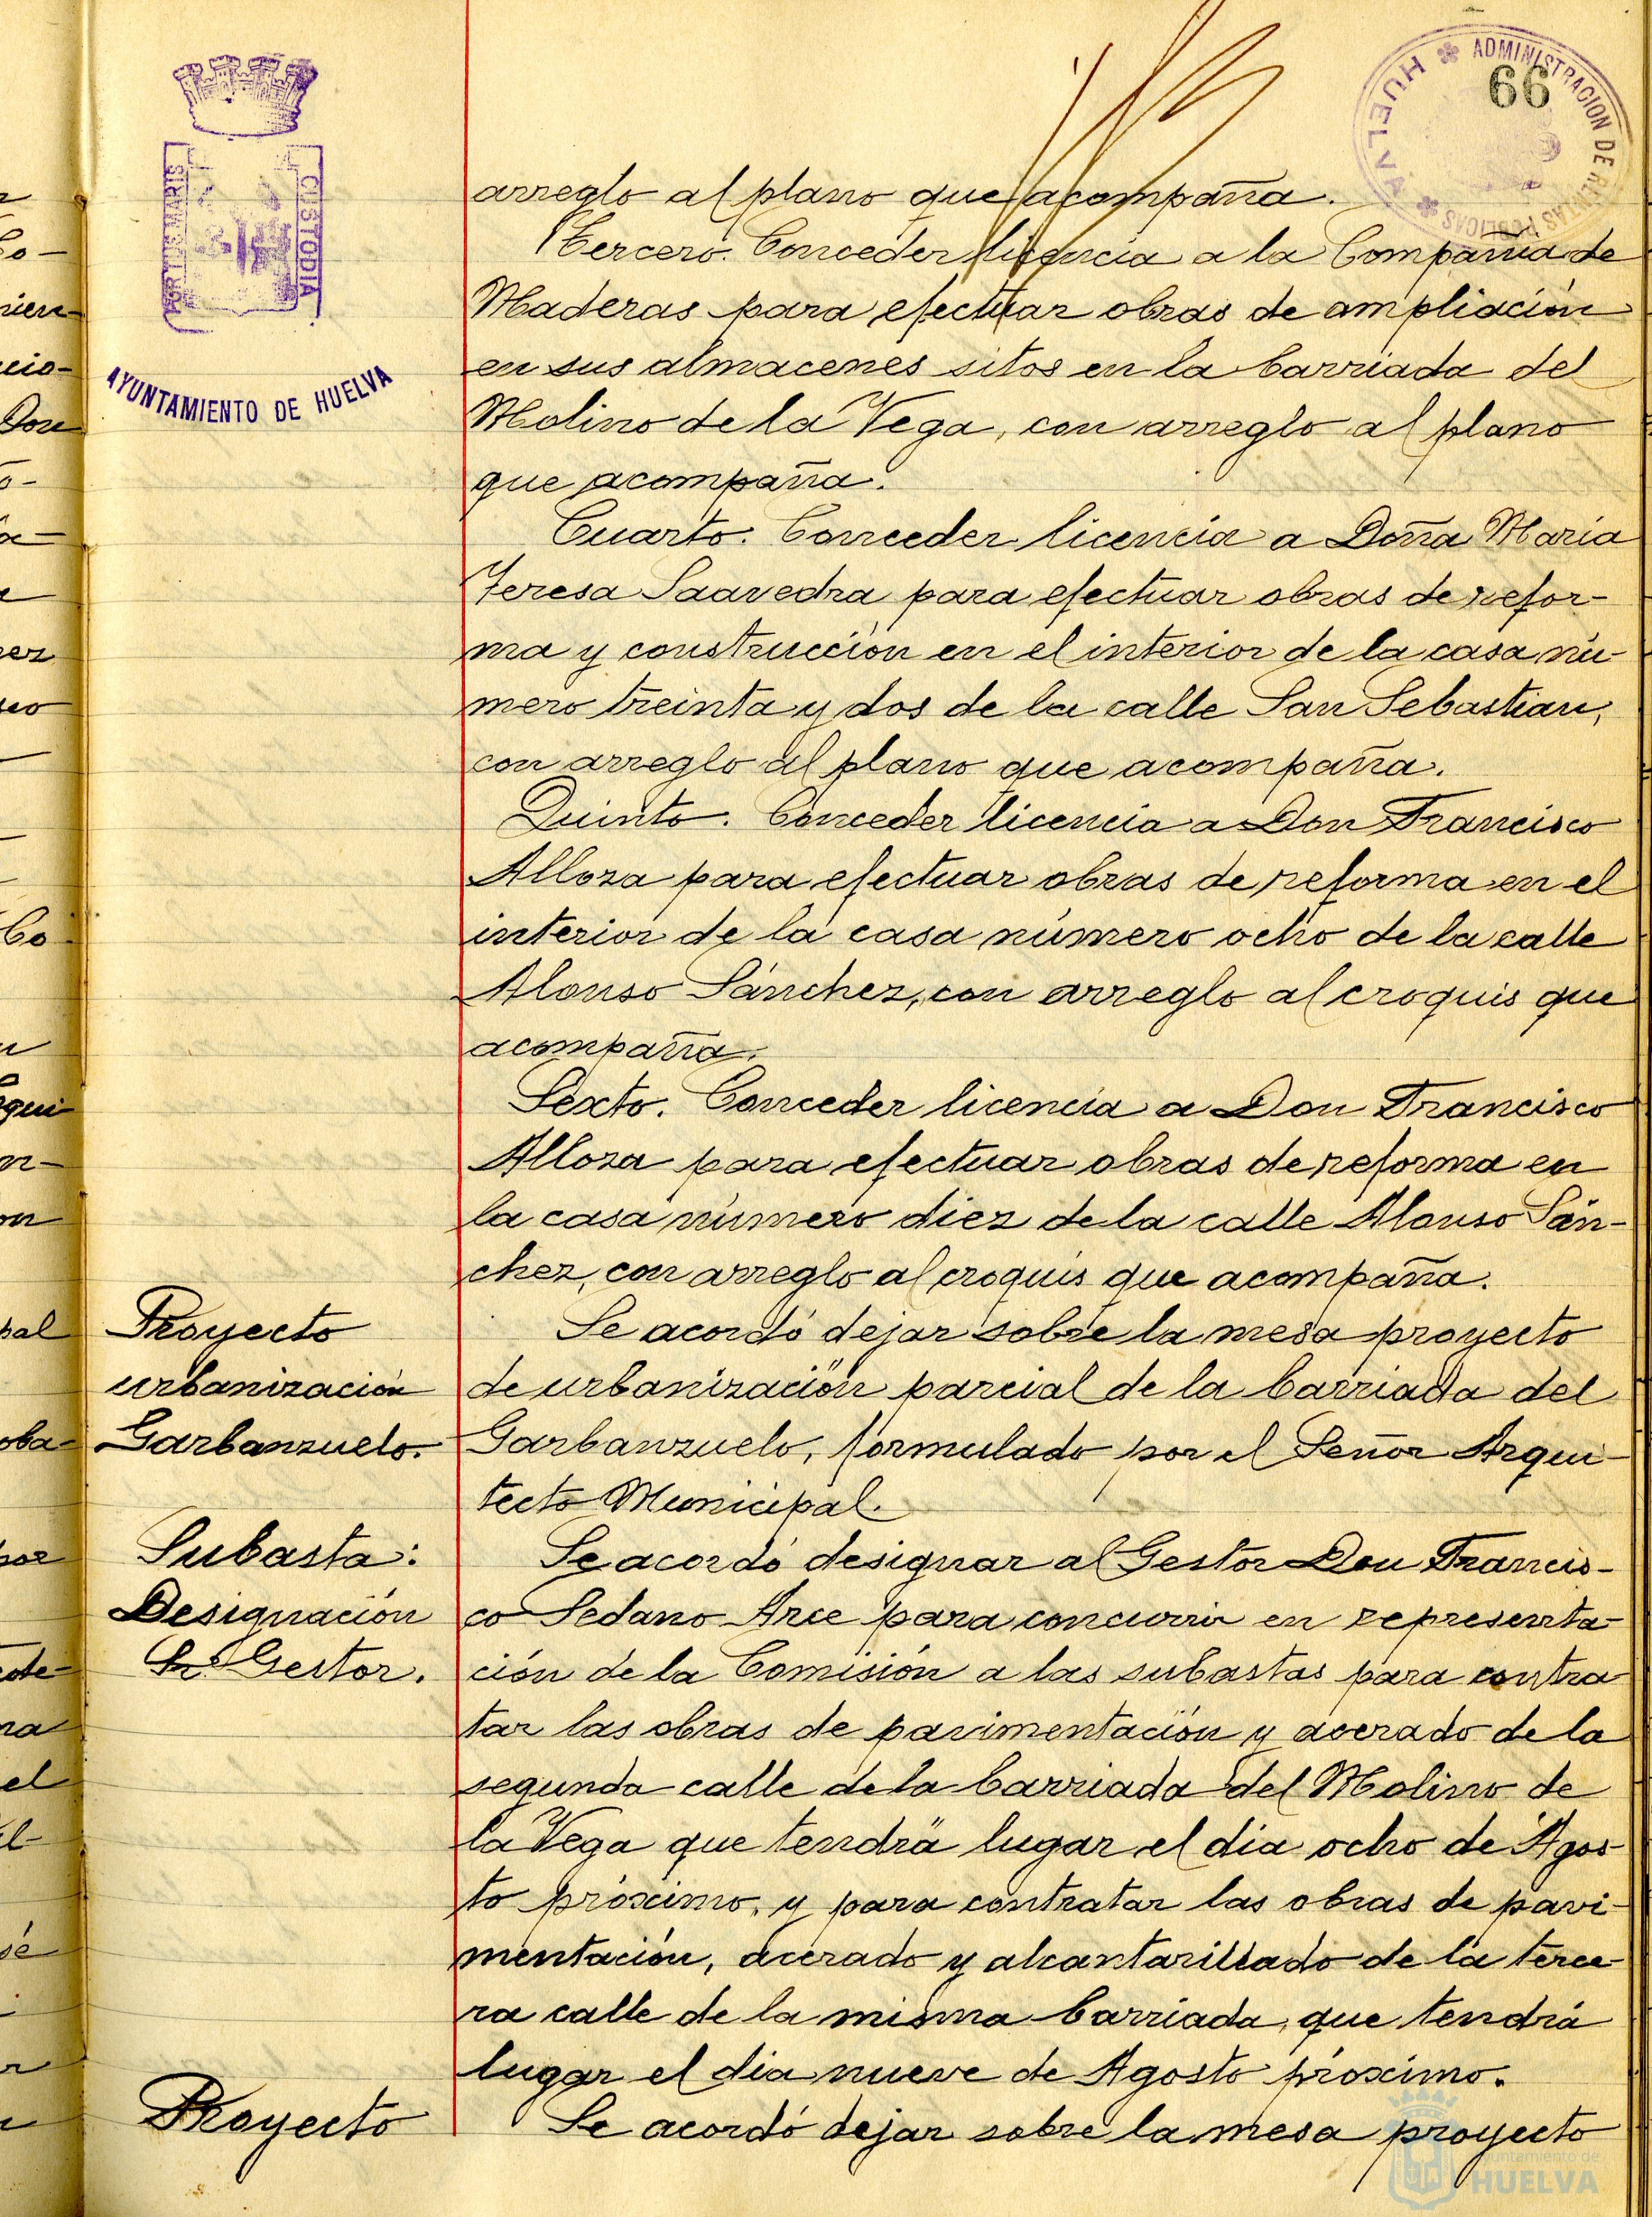 ADMINISTRACION DE RENTAS PUBLICAS
HUELVA
66
PORTUS MARIS
CUSTODIA
AYUNTAMIENTO DE HUELVA
arreglo al plano que acompaña.
Tercero. Conceder licencia a la Compañia de
Maderas para efectuar obras de ampliación
en sus almacenes sitos en la barriada del
Molino de la Vega, con arreglo al plano
que acompaña.
Cuarto. Conceder licencia a Doña Maria
Teresa Saavedra para efectuar obras de refor-
ma y construcción en el interior de la casa nú-
mero treinta y dos de la calle San Sebastian,
con arreglo al plano que acompaña.
Quinto. Conceder licencia a Don Francisco
Alloza para efectuar obras de reforma en el
interior de la casa número ocho de la calle
Alonso Sánchez, con arreglo al croquis que
acompaña.
Sexto. Conceder licencia a Don Francisco
Alloza para efectuar obras de reforma en
la casa número diez de la calle Alonso Sán-
chez, con arreglo al croquis que acompaña.
Proyecto
urbanización
Garbanzuelo.
Se acordó dejar sobre la mesa proyecto
de urbanización parcial de la barriada del
Garbanzuelo, formulado por el Señor Arqui-
tecto Municipal.
Subasta:
Designación
Gestor.
Se acordó designar al Gestor Don Francis-
co Sedano Arce para concurrir en representa-
ción de la Comisión a las subastas para contra
tar las obras de pavimentación y acerado de la
segunda calle de la barriada del Molino de
la Vega que tendrá lugar el dia ocho de Agos-
to próximo, y para contratar las obras de pavi-
mentación, acerado y alcantarillado de la terce-
ra calle de la misma barriada, que tendrá
lugar el dia nueve de Agosto próximo.
Proyecto
Se acordó dejar sobre la mesa proyecto
Ayuntamiento de
HUELVA